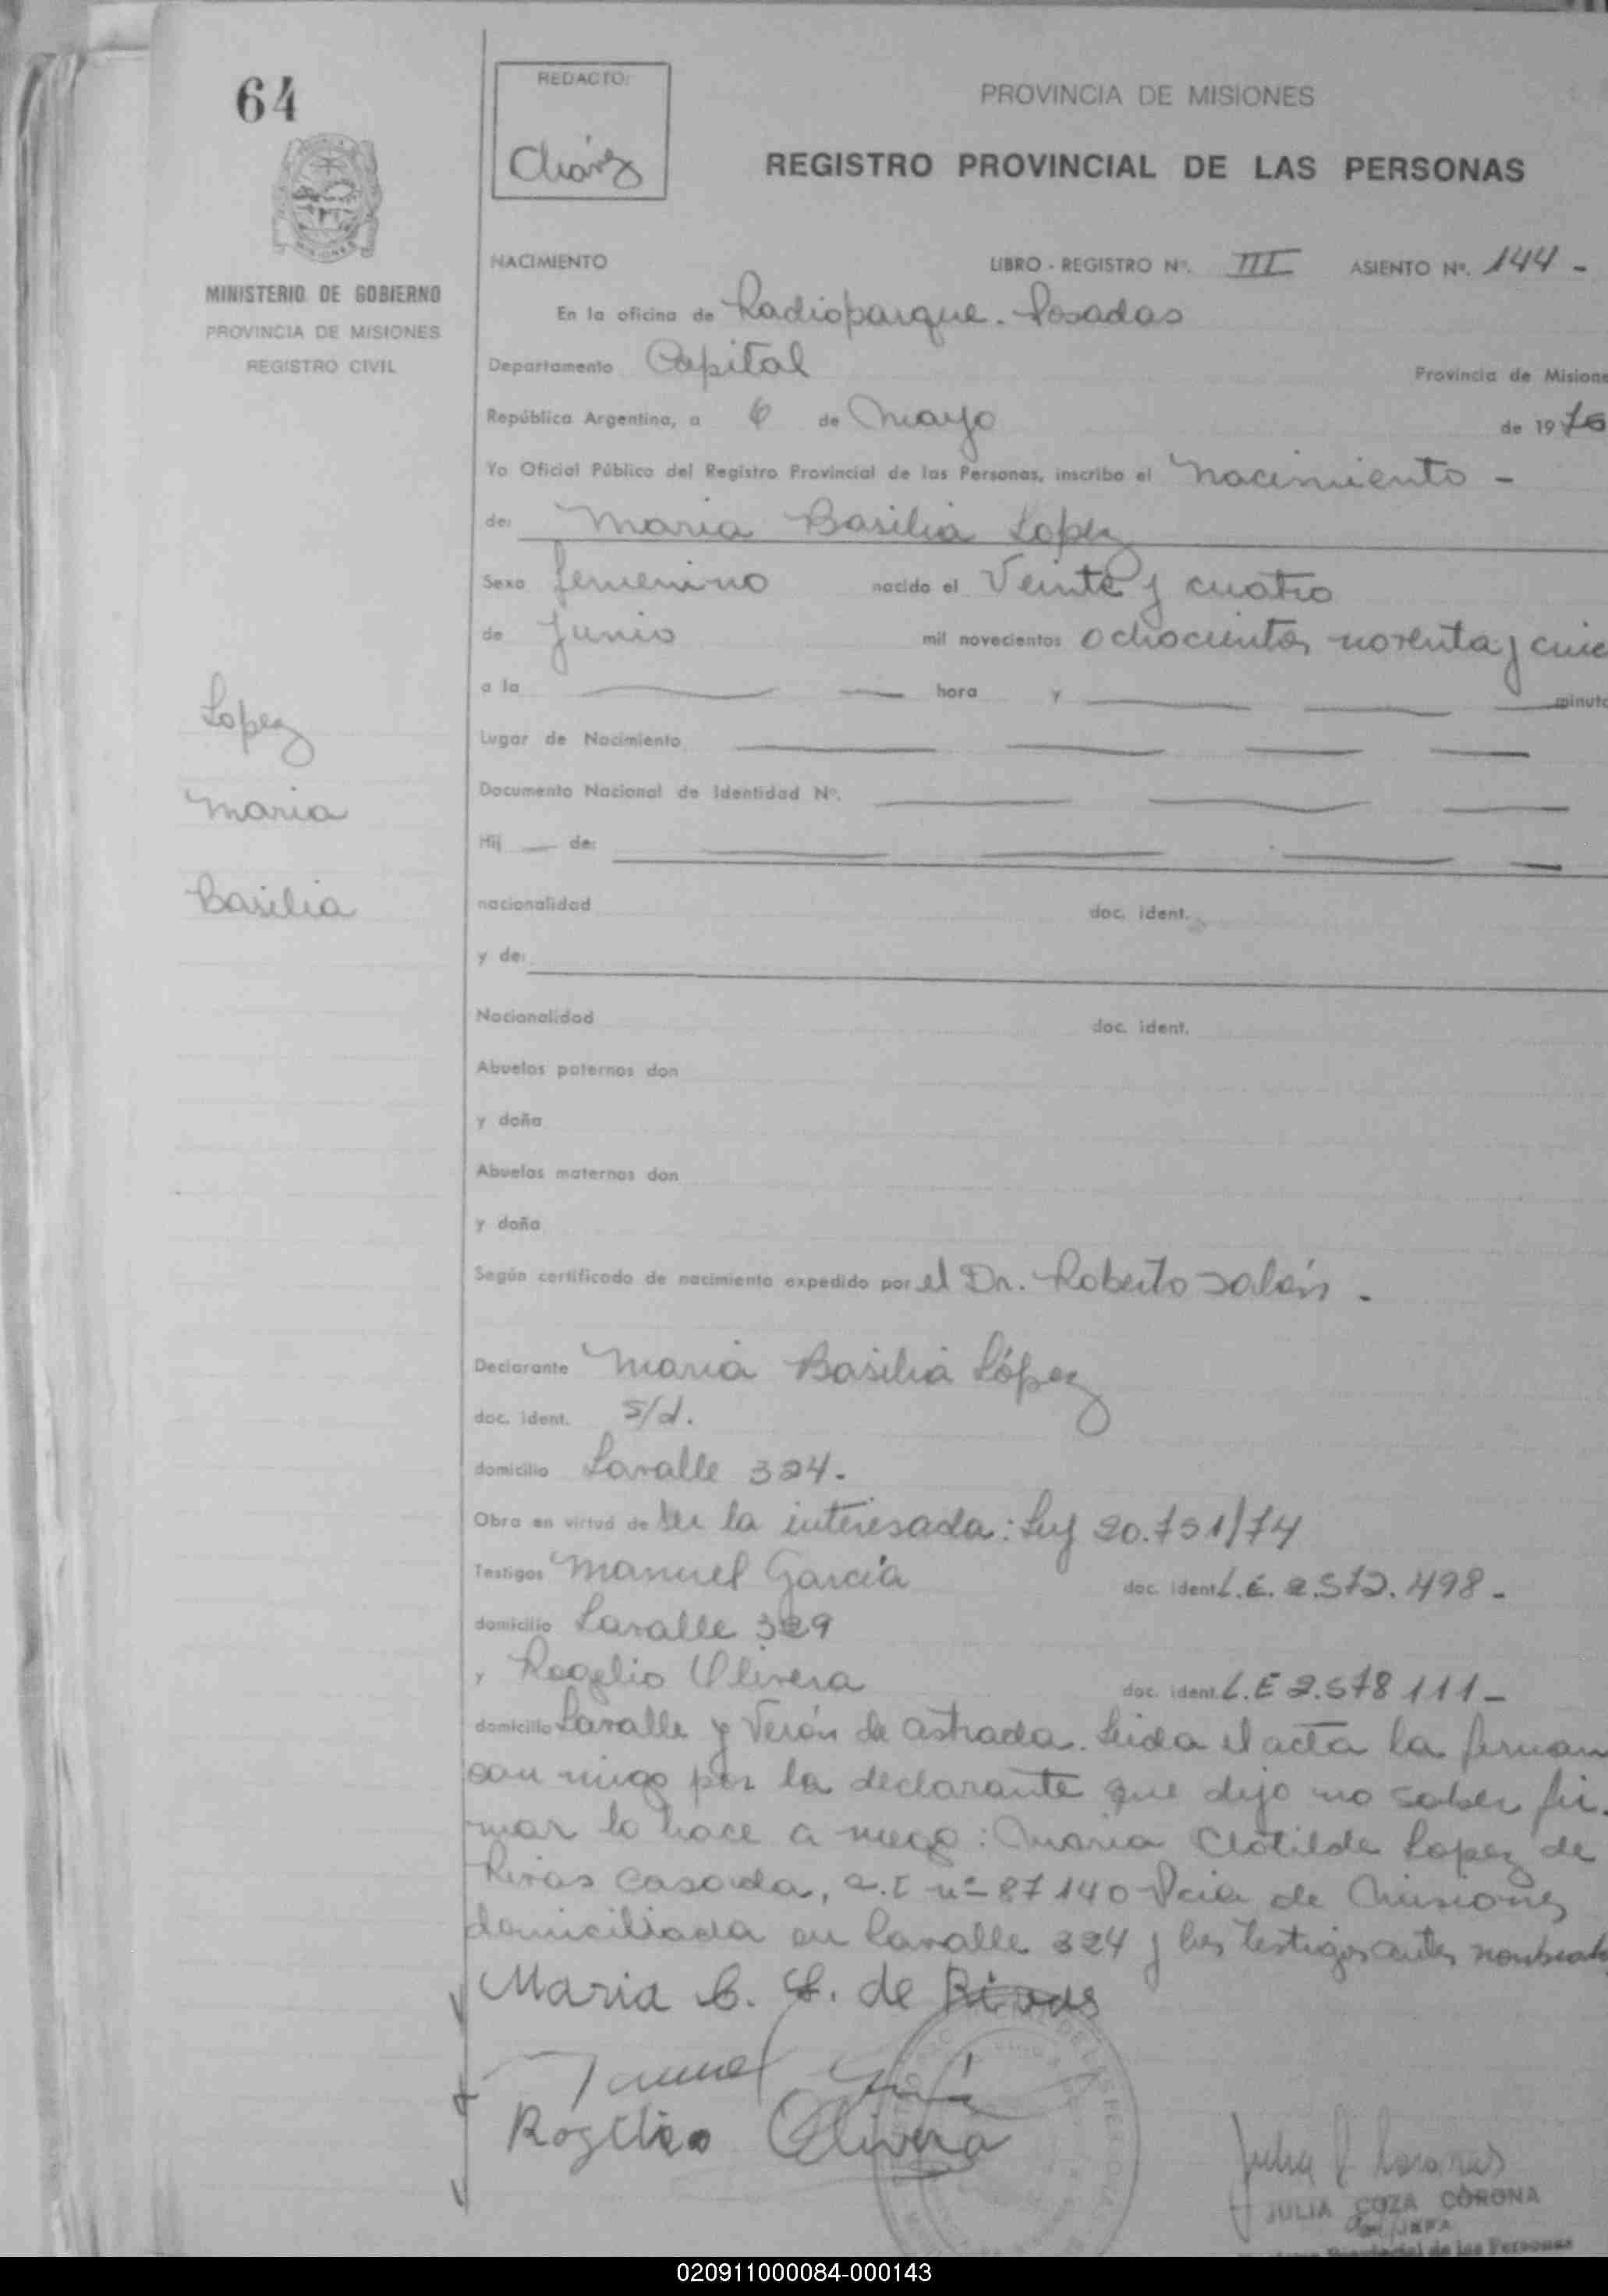 64
REDACTO:
Cháv​ez
PROVINCIA DE MISIONES
REGISTRO PROVINCIAL DE LAS PERSONAS
MINISTERIO DE GOBIERNO
PROVINCIA DE MISIONES
REGISTRO CIVIL
NACIMIENTO LIBRO - REGISTRO Nº. III ASIENTO Nº. 144 -
En la oficina de Radioparque. Posadas
Departamento Capital Provincia de Misione
República Argentina, a 6 de Mayo de 1976
Yo Oficial Público del Registro Provincial de las Personas, inscribo el nacimiento -
de: Maria Basilia Lopez
Sexo femenino nacido el Veinte y cuatro
de Junio mil novecientos ochocientos noventa y cinc
a la hora y minuto
Lopez
Maria
Basilia
Lugar de Nacimiento
Documento Nacional de Identidad Nº.
Hij de:
nacionalidad doc. ident.
y de:
Nacionalidad doc. ident.
Abuelos paternos don
y doña
Abuelos maternos don
y doña
Según certificado de nacimiento expedido por el Dr. Roberto
Declarante Maria Basilia López
doc. ident. s/d.
domicilio Lavalle 324.
Obra en virtud de ser la interesada: Ley 20.751/74
Testigos Manuel García doc. ident. L.E. 2.572.498 -
domicilio Lavalle 329
y Rogelio Olivera doc. ident. L.E 2.578 111 -
domicilio Lavalle y Verón de astrada. Leida el acta la firman
con migo por la declarante que dijo no saber fir-
mar lo hace a ruego: Maria Clotilde Lopez de
Rivas casada, c.I nº 87140 Pcia de Misiones
domiciliada en Lavalle 324 y los testigos antes nombrado
Maria C. L. de Rivas
Rogelio Olivera
JULIA COZA CORONA
JEFA
Provincial de las Personas
020911000084-000143